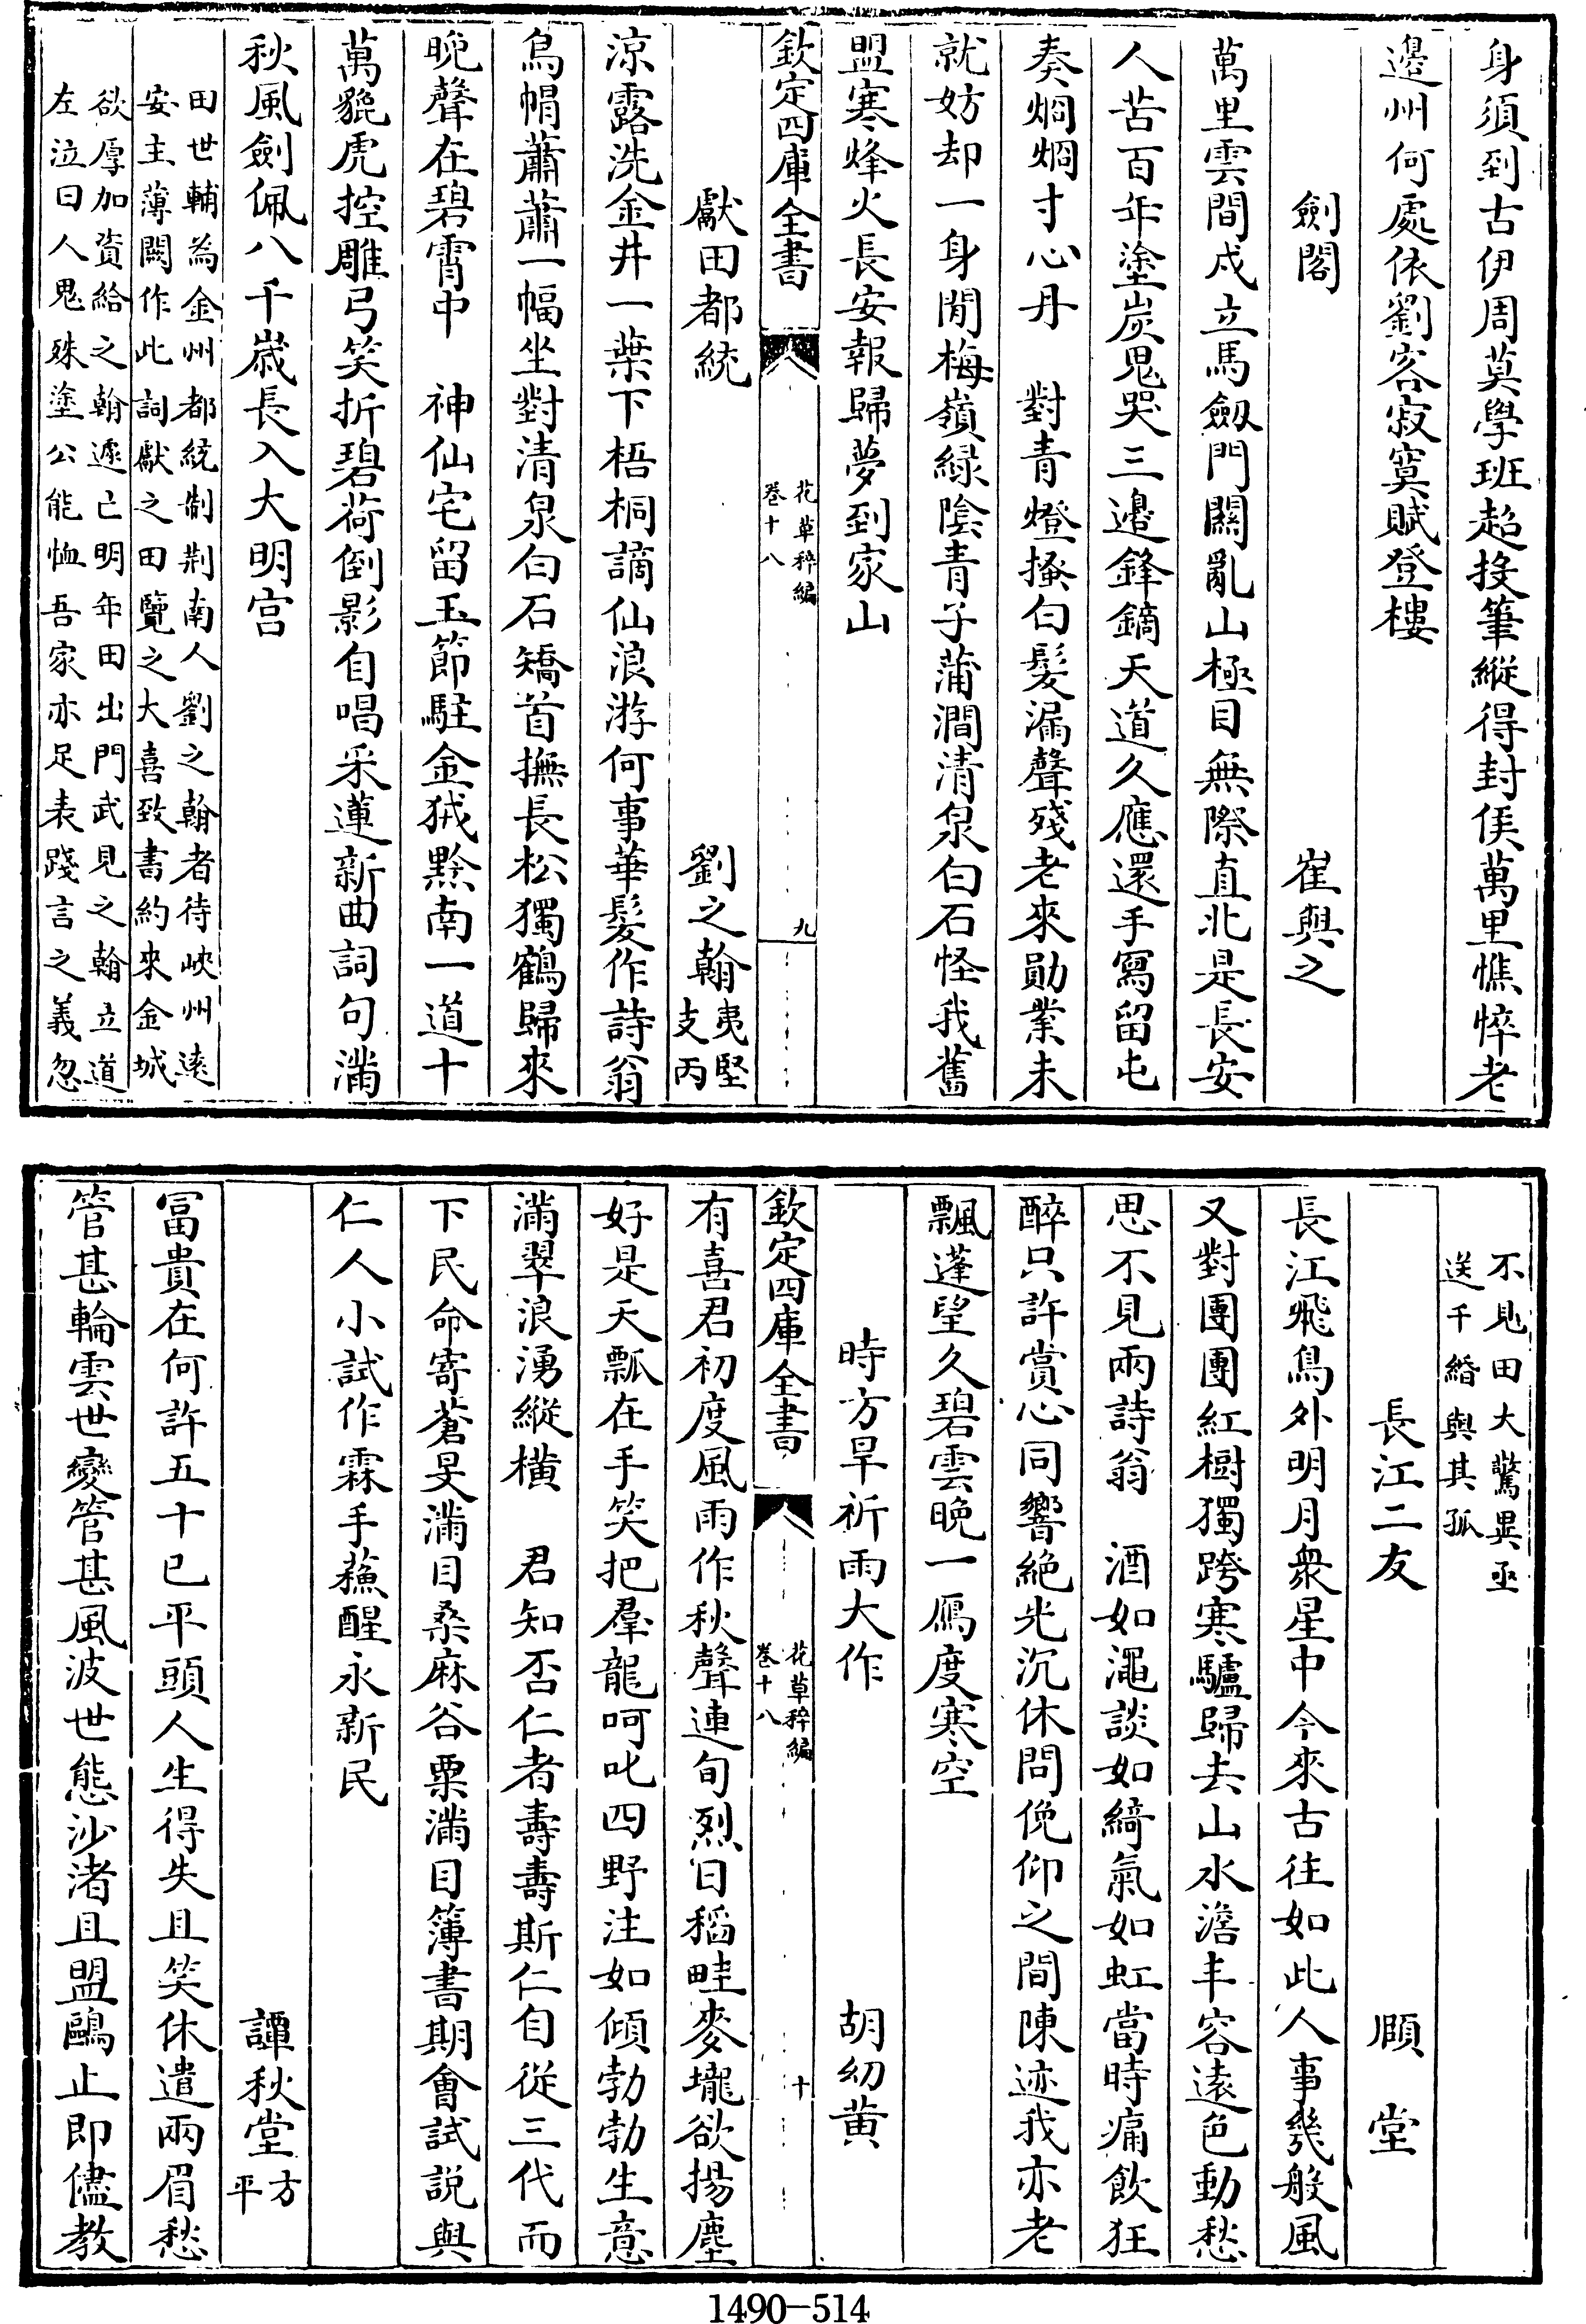 身須到古伊周莫學班超投筆縱得封侯萬里憔悴老
邉州何處依劉客寂寞賦登樓
劍閣　崔與之
萬里雲間戍立馬劔門闗亂山極目無際直北是長安
人苦百年塗炭鬼哭三邉鋒鏑天道久應還手寫留屯
奏烱烱寸心丹　對青燈搔白髮漏聲殘老來勛業未
就妨却一身閒梅嶺緑陰青子蒲澗清泉白石怪我舊
盟寒烽火長安報歸夢到家山
欽定四庫全書　花草稡編卷十八　九
獻田都統　劉之翰夷堅支丙
涼露洗金井一葉下梧桐謫仙浪游何事華髮作詩翁
烏帽蕭蕭一幅坐對清泉白石矯首撫長松獨鶴歸來
晚聲在碧霄中　神仙宅留玉節駐金狨黔南一道十
萬貔虎控雕弓笑折碧荷倒影自唱采蓮新曲詞句滿
秋風劍佩八千歲長入大明宫
田世輔為金州都統制荆南人劉之翰者待峽州逺
安主薄闕作此詞獻之田覽之大喜致書約來金城
欲厚加資給之翰遽亡明年田出門武見之翰立道
左泣曰人鬼殊塗公能恤吾家亦足表踐言之義忽
不見田大驚異亟
送千緡與其孤
長江二友　顧堂
長江飛鳥外明月衆星中今來古往如此人事幾般風
又對團團紅樹獨跨寒驢歸去山水澹丰容逺色動愁
思不見兩詩翁　酒如澠談如綺氣如虹當時痛飲狂
醉只許賞心同響絶光沉休問俛仰之間陳迹我亦老
飄蓬望久碧雲晚一鴈度寒空
時方旱祈雨大作　胡幼黄
欽定四庫全書　花草稡編卷十八　十
有喜君初度風雨作秋聲連旬烈日稻畦麥壠欲揚塵
好是天瓢在手笑把羣龍呵叱四野注如傾勃勃生意
滿翠浪湧縱横　君知否仁者壽壽斯仁自從三代而
下民命寄蒼旻滿目桑麻谷粟滿目簿書期會試説與
仁人小試作霖手蘓醒永新民
譚秋堂方平
冨貴在何許五十已平頭人生得失且笑休遣兩眉愁
管甚輪雲世變管甚風波世態沙渚且盟鷗止即儘教
1490-514